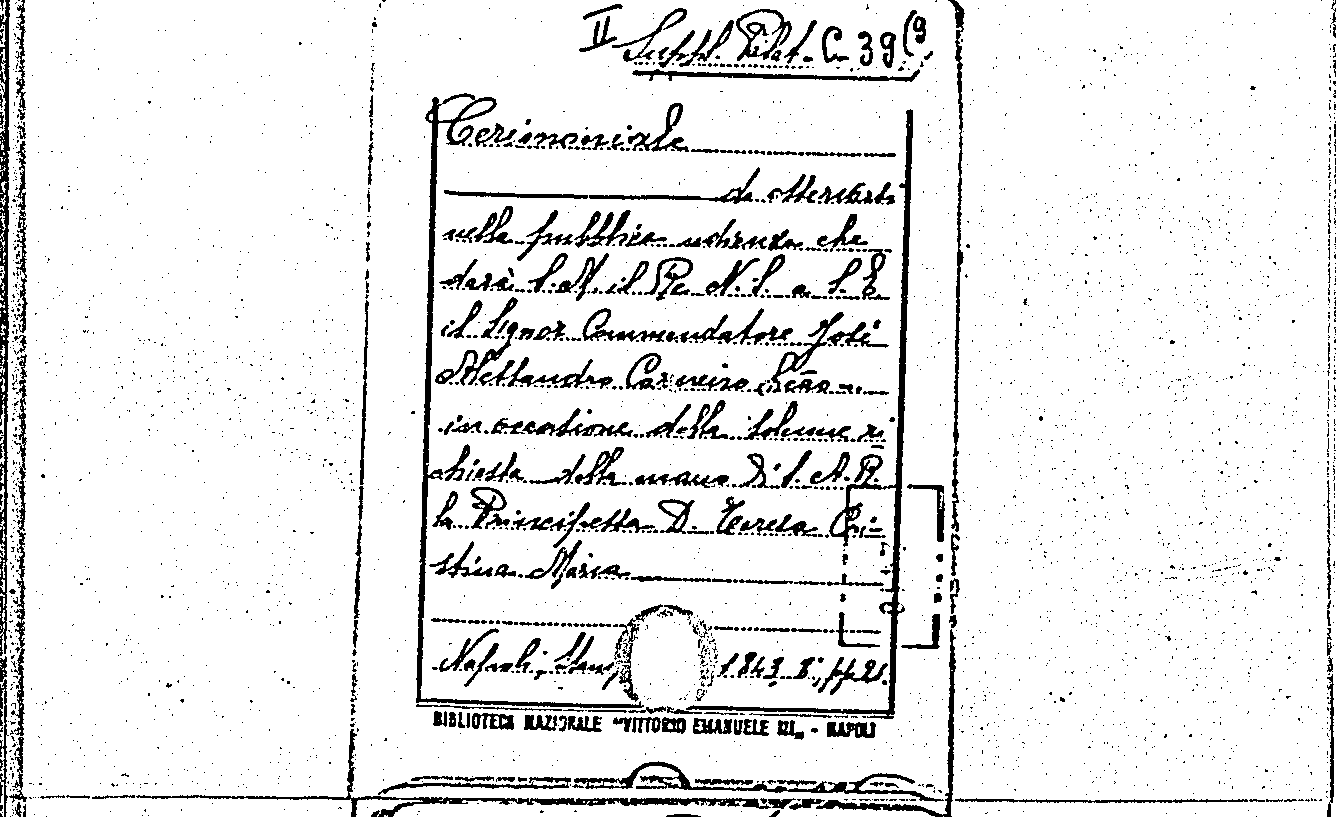 II Suppl. Palat. C 39 (9
Cerimoniale
da osservarsi
nella pubblica udienza che
darà S. M. il Re N. S. a S. E.
il Signor Commendatore José
Alessandro Carneiro Leão
in occasione della solenne ri-
chiesta della mano di S. A. R.
la Principessa D. Teresa Cri-
stina Maria
Napoli, Stamp 1843 8°, pp 21.
BIBLIOTECA NAZIONALE "VITTORIO EMANUELE III„ - NAPOLI